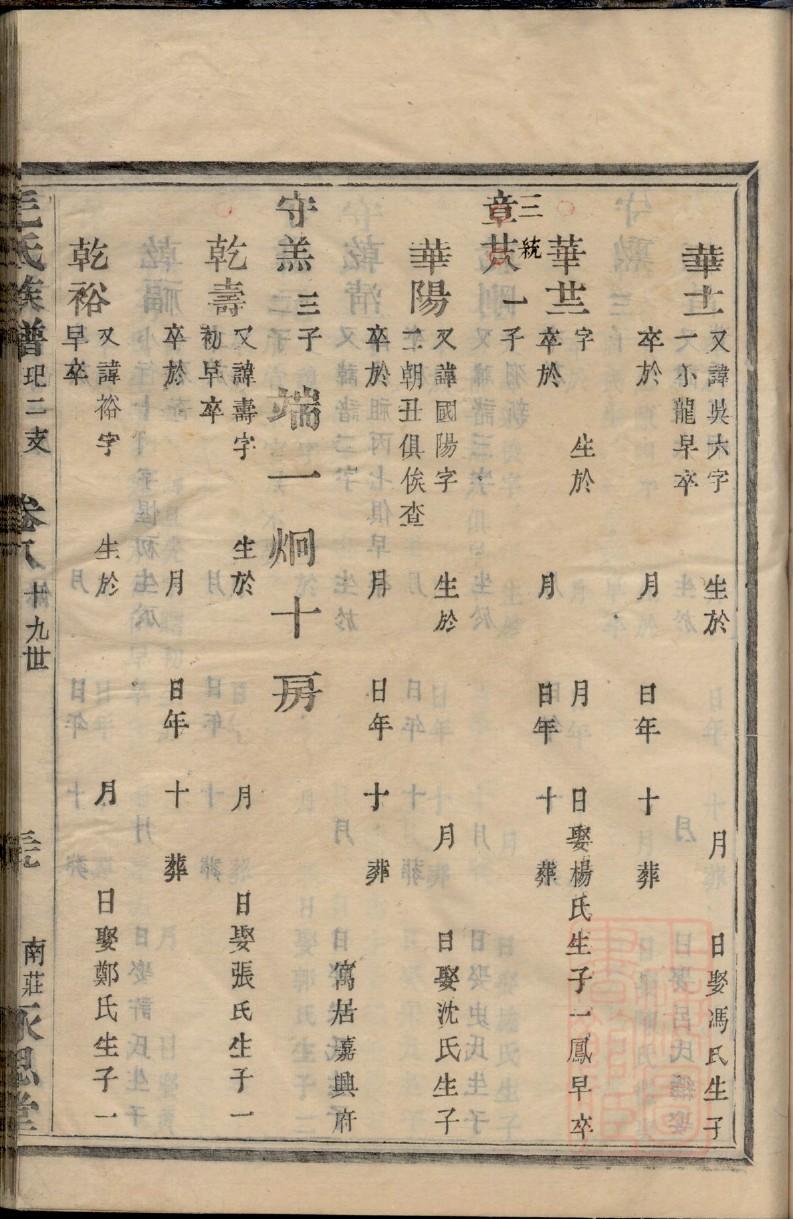 華士 又諱吳六字 生於 月 日娶馮氏生子
一小龍早卒
卒於 月 日年 十 葬
華芸 字 生於 月 日娶楊氏生子一鳳早卒
卒於 月 日年 十 葬
三統
章芪 一子
華陽 又諱國陽字 生於 月 日娶沈氏生子
二朝丑俱俟查
卒於 月 日年 十 葬
寓居嘉興府
守羔 三子 端一炯十房
乾壽 又諱壽字 生於 月 日娶張氏生子一
初早卒
卒於 月 日年 十 葬
乾裕 又諱裕字 生於 月 日娶鄭氏生子一
早卒
毛氏族譜 玘二支 卷八 十九世 南莊永思堂